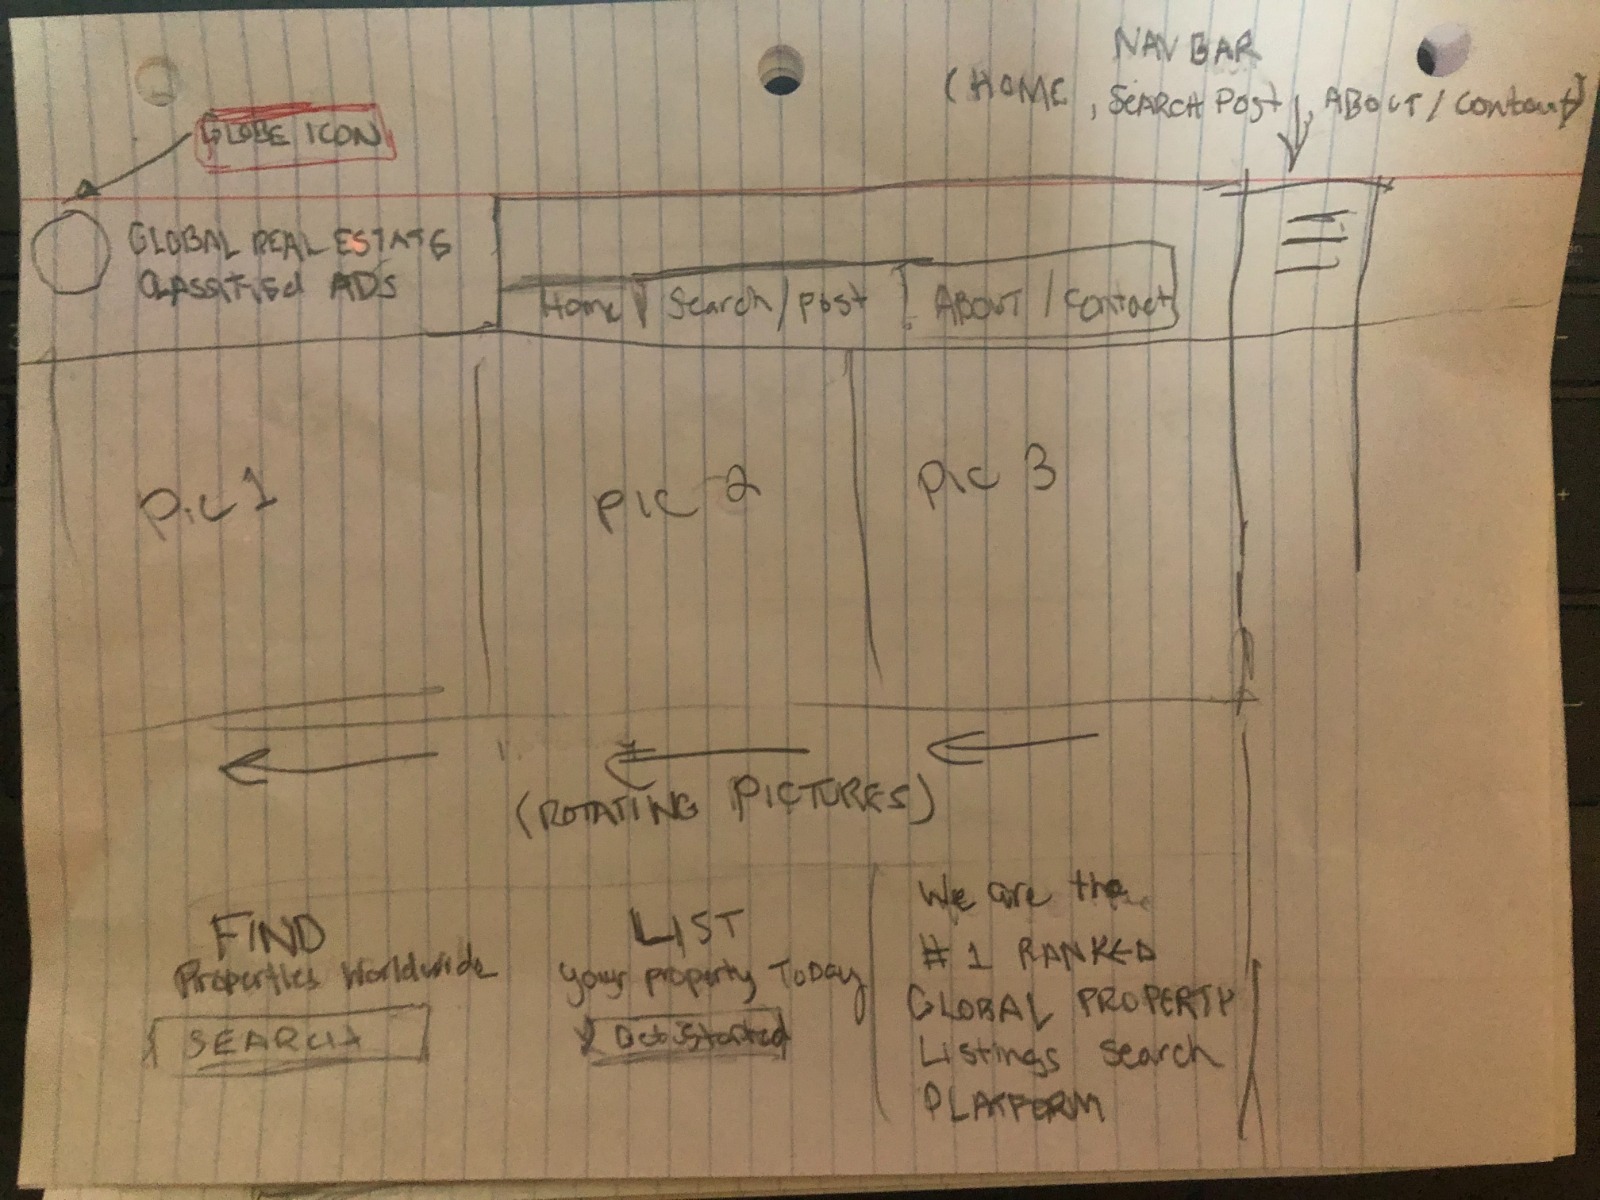 NAV BAR
(HOME, SEARCH POST, ABOUT / Contact)
GLOBE ICON
GLOBAL REAL ESTATE
CLASSIFIEd ADS
Home | Search / post | ABOUT / Contact
Pic 1
PIC 2
PIC 3
(ROTATING PICTURES)
FIND
Properties Worldwide
SEARCH
LIST
your property ToDay
Get Started
We are the
# 1 RANKED
GLOBAL PROPERTY
Listings Search
PLATFORM